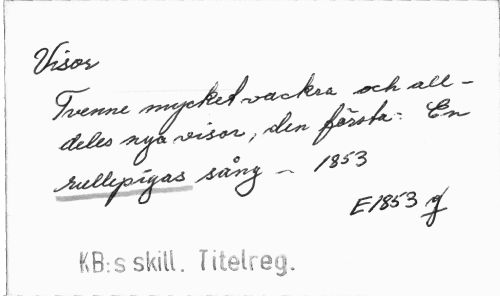 Visor
Tvenne mycket vackra och all-
deles nya visor, den första: En
rullepigas sång – 1853
E1853 g
KB:s skill. Titelreg.